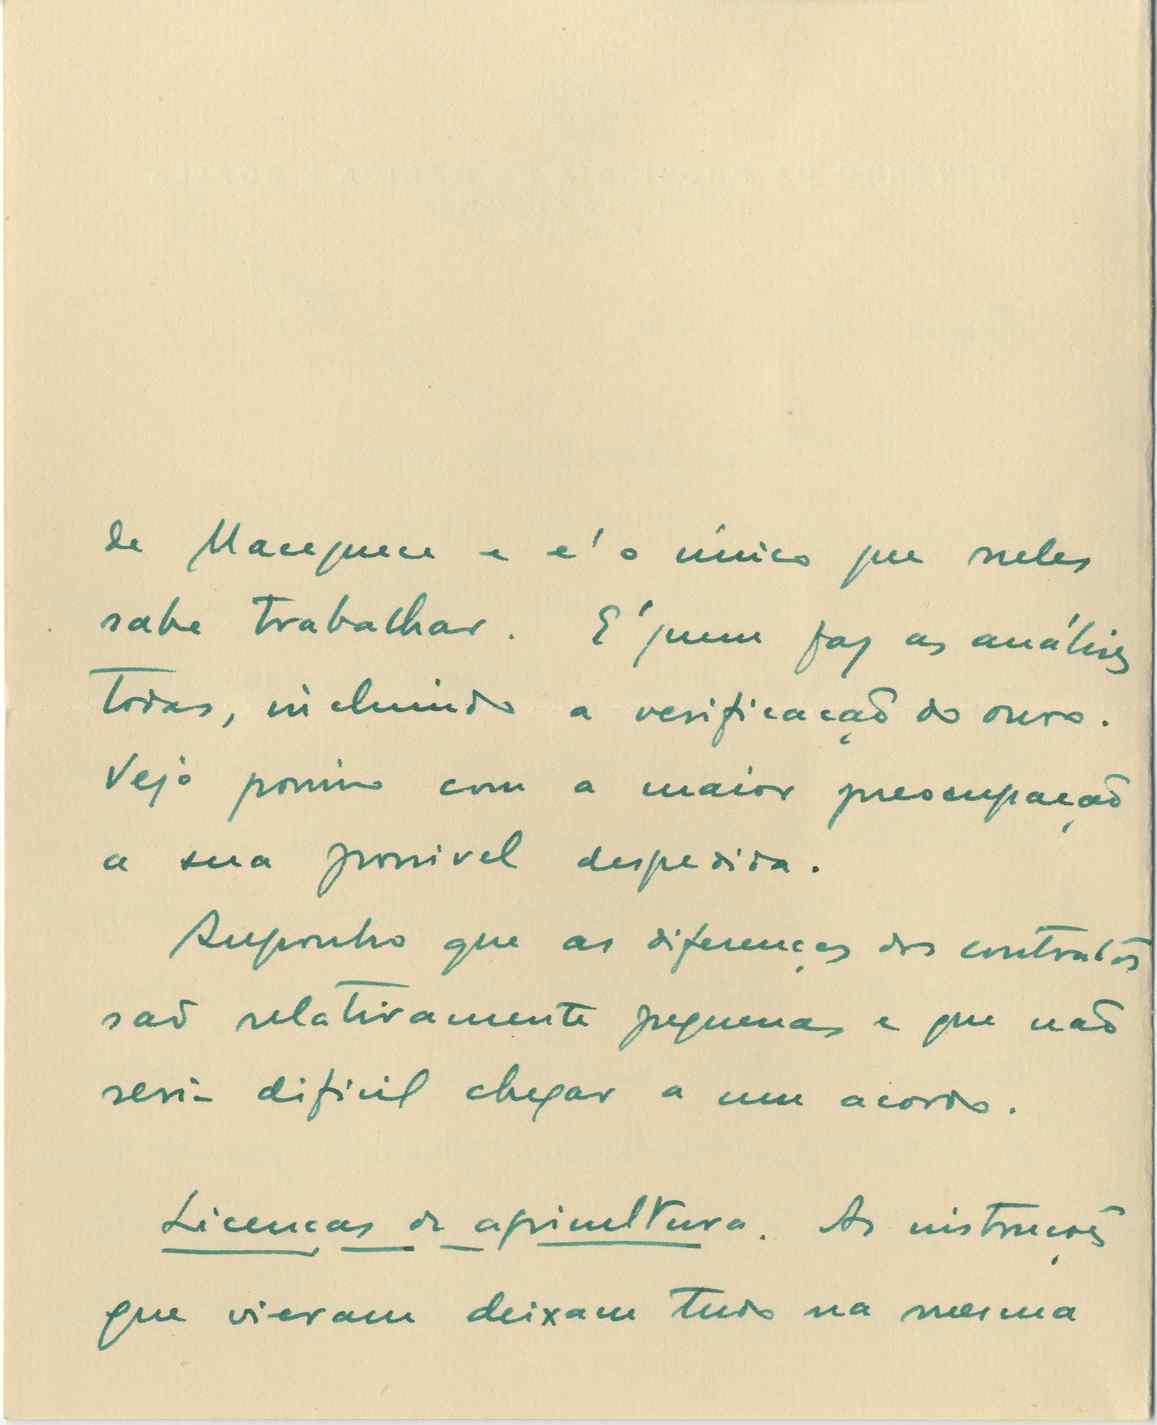 de Macequece e é o único que neles
sabe trabalhar. É quem faz as análises
todas, incluindo a verificação do ouro.
Vejo por isso com a maior preocupação
a sua possivel despedida.
Suponho que as diferenças dos contratos
são relativamente pequenas e que não
seria dificil chegar a um acordo.
Licenças de agricultura. As instruções
que vieram deixam tudo na mesma